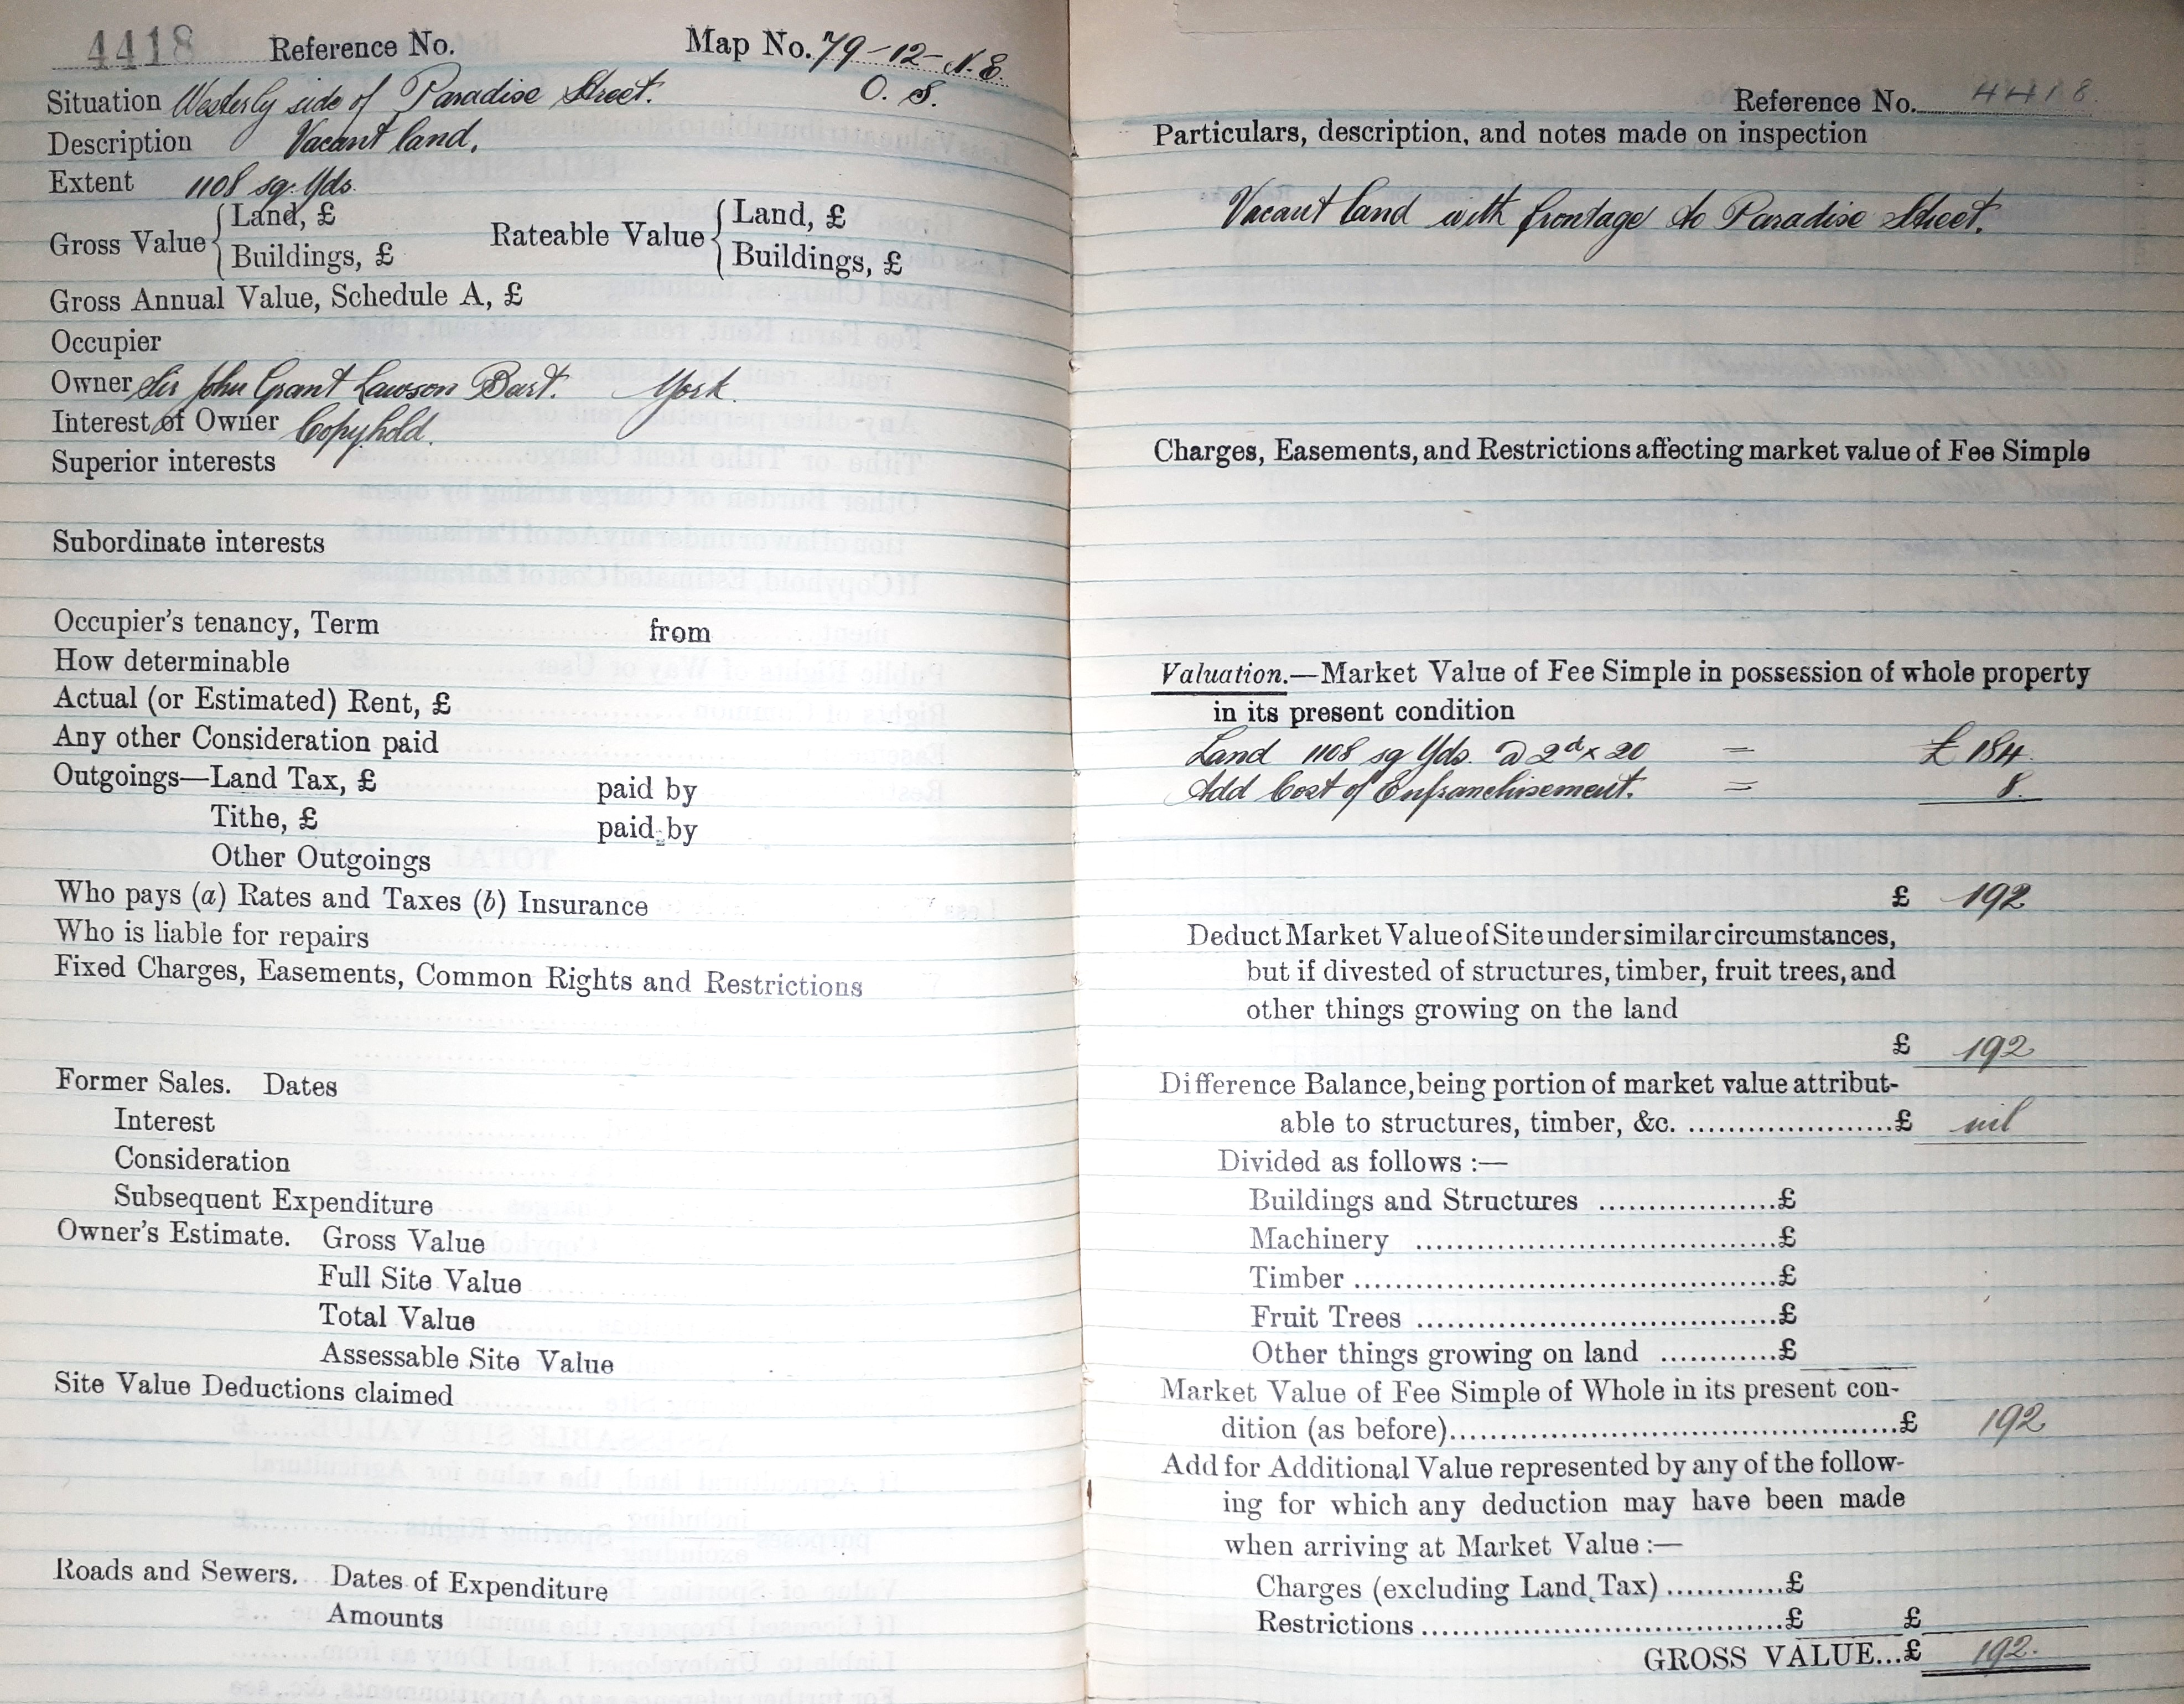 4418 Reference No. Map No. 79-12-N.E.
O. S.
Situation Westerly side of Paradise Street.
Description Vacant land.
Extent 1108 sq. Yds.
Gross Value { Land, £ Rateable Value { Land, £
Buildings, £ Buildings, £
Gross Annual Value, Schedule A, £
Occupier
Owner Sir John Grant Lawson Bart. York.
Interest of Owner Copyhold.
Superior interests
Subordinate interests
Occupier's tenancy, Term from
How determinable
Actual (or Estimated) Rent, £
Any other Consideration paid
Outgoings—Land Tax, £ paid by
Tithe, £ paid by
Other Outgoings
Who pays (a) Rates and Taxes (b) Insurance
Who is liable for repairs
Fixed Charges, Easements, Common Rights and Restrictions
Former Sales. Dates
Interest
Consideration
Subsequent Expenditure
Owner's Estimate. Gross Value
Full Site Value
Total Value
Assessable Site Value
Site Value Deductions claimed
Roads and Sewers. Dates of Expenditure
Amounts
Reference No. 4418.
Particulars, description, and notes made on inspection
Vacant land with frontage to Paradise Street.
Charges, Easements, and Restrictions affecting market value of Fee Simple
Valuation.—Market Value of Fee Simple in possession of whole property
in its present condition
Land 1108 sq Yds. @ 2d x 20 = £ 184.
Add Cost of Enfranchisement. = 8.
£ 192
Deduct Market Value of Site under similar circumstances,
but if divested of structures, timber, fruit trees, and
other things growing on the land
£ 192
Difference Balance, being portion of market value attribut-
able to structures, timber, &c. ....................£ nil
Divided as follows :—
Buildings and Structures ..................£
Machinery .....................................£
Timber ...........................................£
Fruit Trees .....................................£
Other things growing on land ............£
Market Value of Fee Simple of Whole in its present con-
dition (as before)..............................................£ 192
Add for Additional Value represented by any of the follow-
ing for which any deduction may have been made
when arriving at Market Value :—
Charges (excluding Land Tax) ............£
Restrictions .....................................£ £
GROSS VALUE...£ 192.